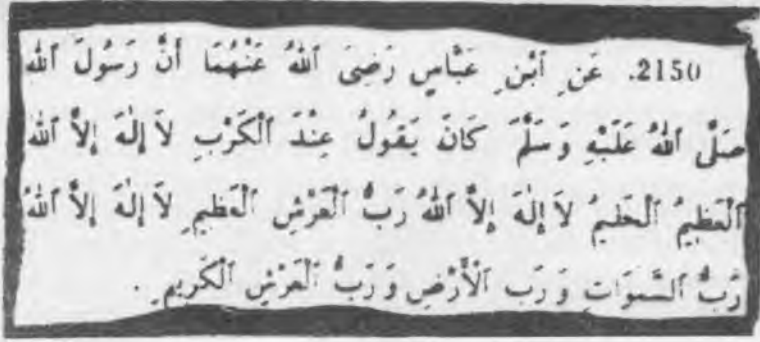 2150. عَنِ ٱبْنِ عَبَّاسٍ رَضِىَ ٱللهُ عَنْهُمَا أَنَّ رَسُولَ ٱللهِ
صَلَّى ٱللهُ عَلَيْهِ وَسَلَّمَ كَانَ يَقُولُ عِنْدَ ٱلْكَرْبِ لاَ إِلٰهَ إِلاَّ ٱللهُ
ٱلْعَظِيمُ ٱلْحَلِيمُ لاَ إِلٰهَ إِلاَّ ٱللهُ رَبُّ ٱلْعَرْشِ ٱلْعَظِيمِ لاَ إِلٰهَ إِلاَّ ٱللهُ
رَبُّ ٱلسَّمَوَاتِ وَرَب ٱلْأَرْضِ وَرَبُّ ٱلْعَرْشِ ٱلْكَرِيمِ .